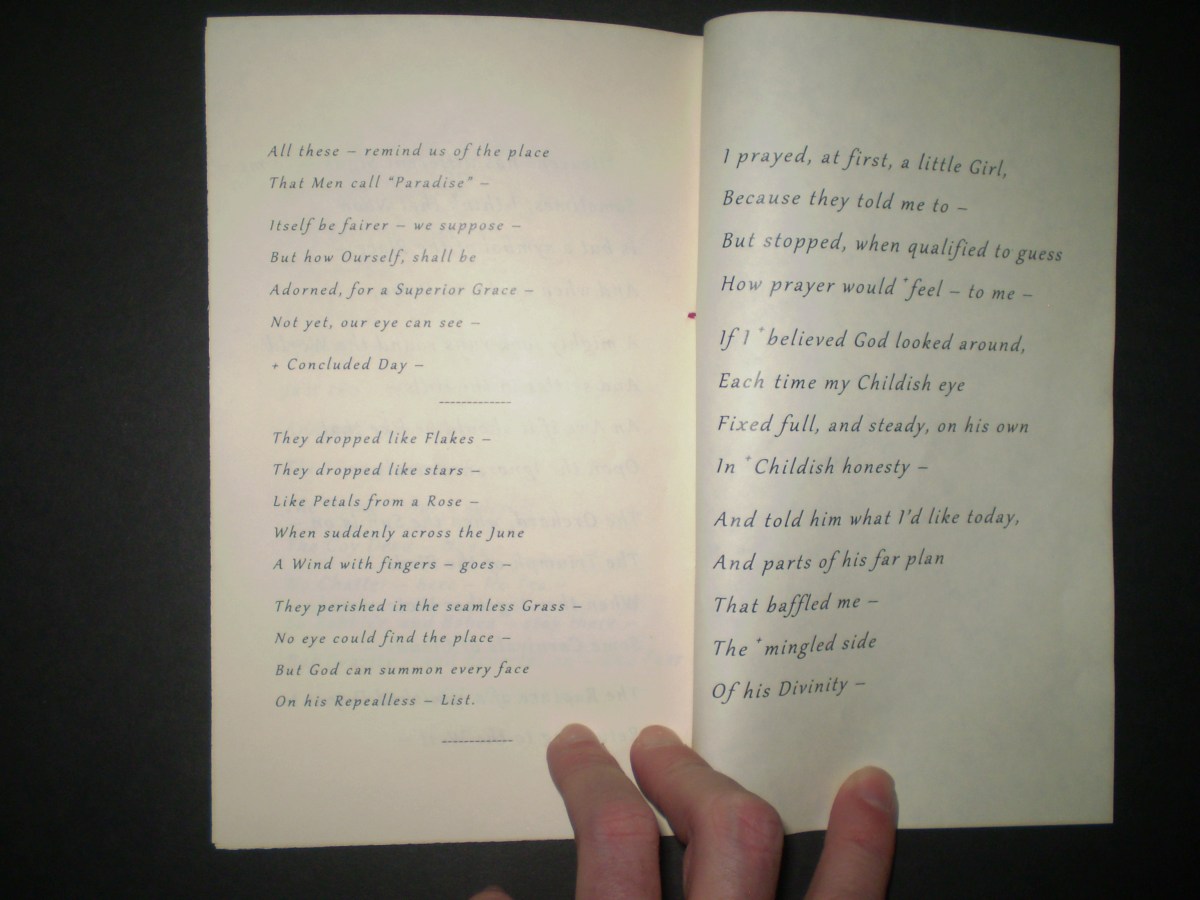 All these – remind us of the place
That Men call “Paradise” –
Itself be fairer – we suppose –
But how Ourself, shall be
Adorned, for a Superior Grace –
Not yet, our eye can see –
+ Concluded Day –
They dropped like Flakes –
They dropped like stars –
Like Petals from a Rose –
When suddenly across the June
A Wind with fingers – goes –
They perished in the seamless Grass –
No eye could find the place –
But God can summon every face
On his Repealless – List.
I prayed, at first, a little Girl,
Because they told me to –
But stopped, when qualified to guess
How prayer would +feel – to me –
If I +believed God looked around,
Each time my Childish eye
Fixed full, and steady, on his own
In +Childish honesty –
And told him what I’d like today,
And parts of his far plan
That baffled me –
The +mingled side
Of his Divinity –